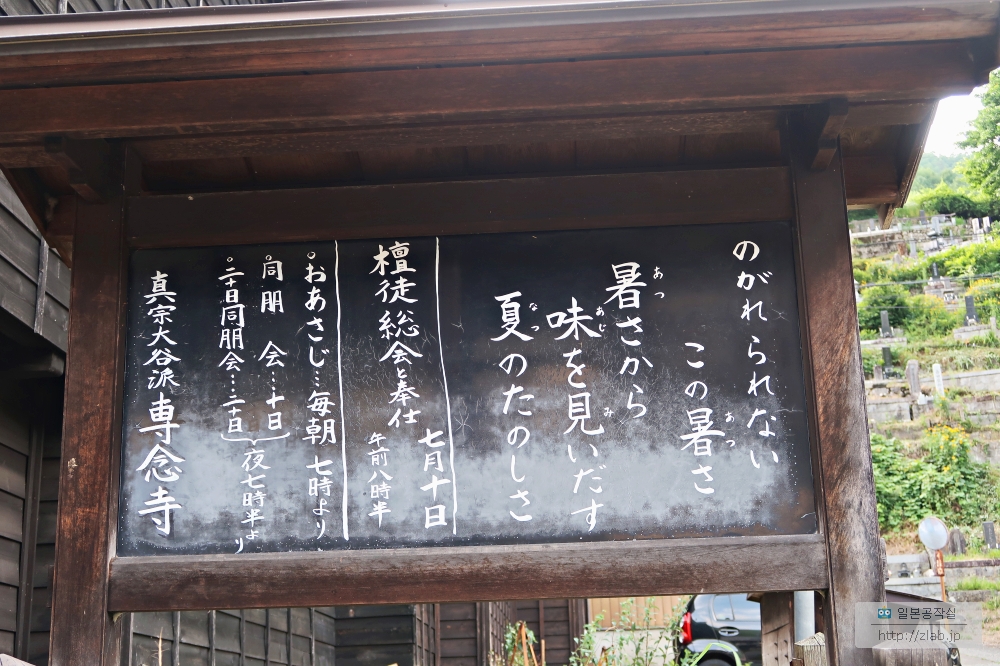 のがれられない
この暑さ
あつ
暑さから
あつ
味を見いだす
あじ
み
夏のたのしさ
なつ
檀徒総会と奉仕
七月十日
午前八時半
○おあさじ…毎朝七時より
○同朋会…十日
○二十日同朋会…二十日
夜七時半より
真宗大谷派専念寺
일본공작실
http://zlab.jp